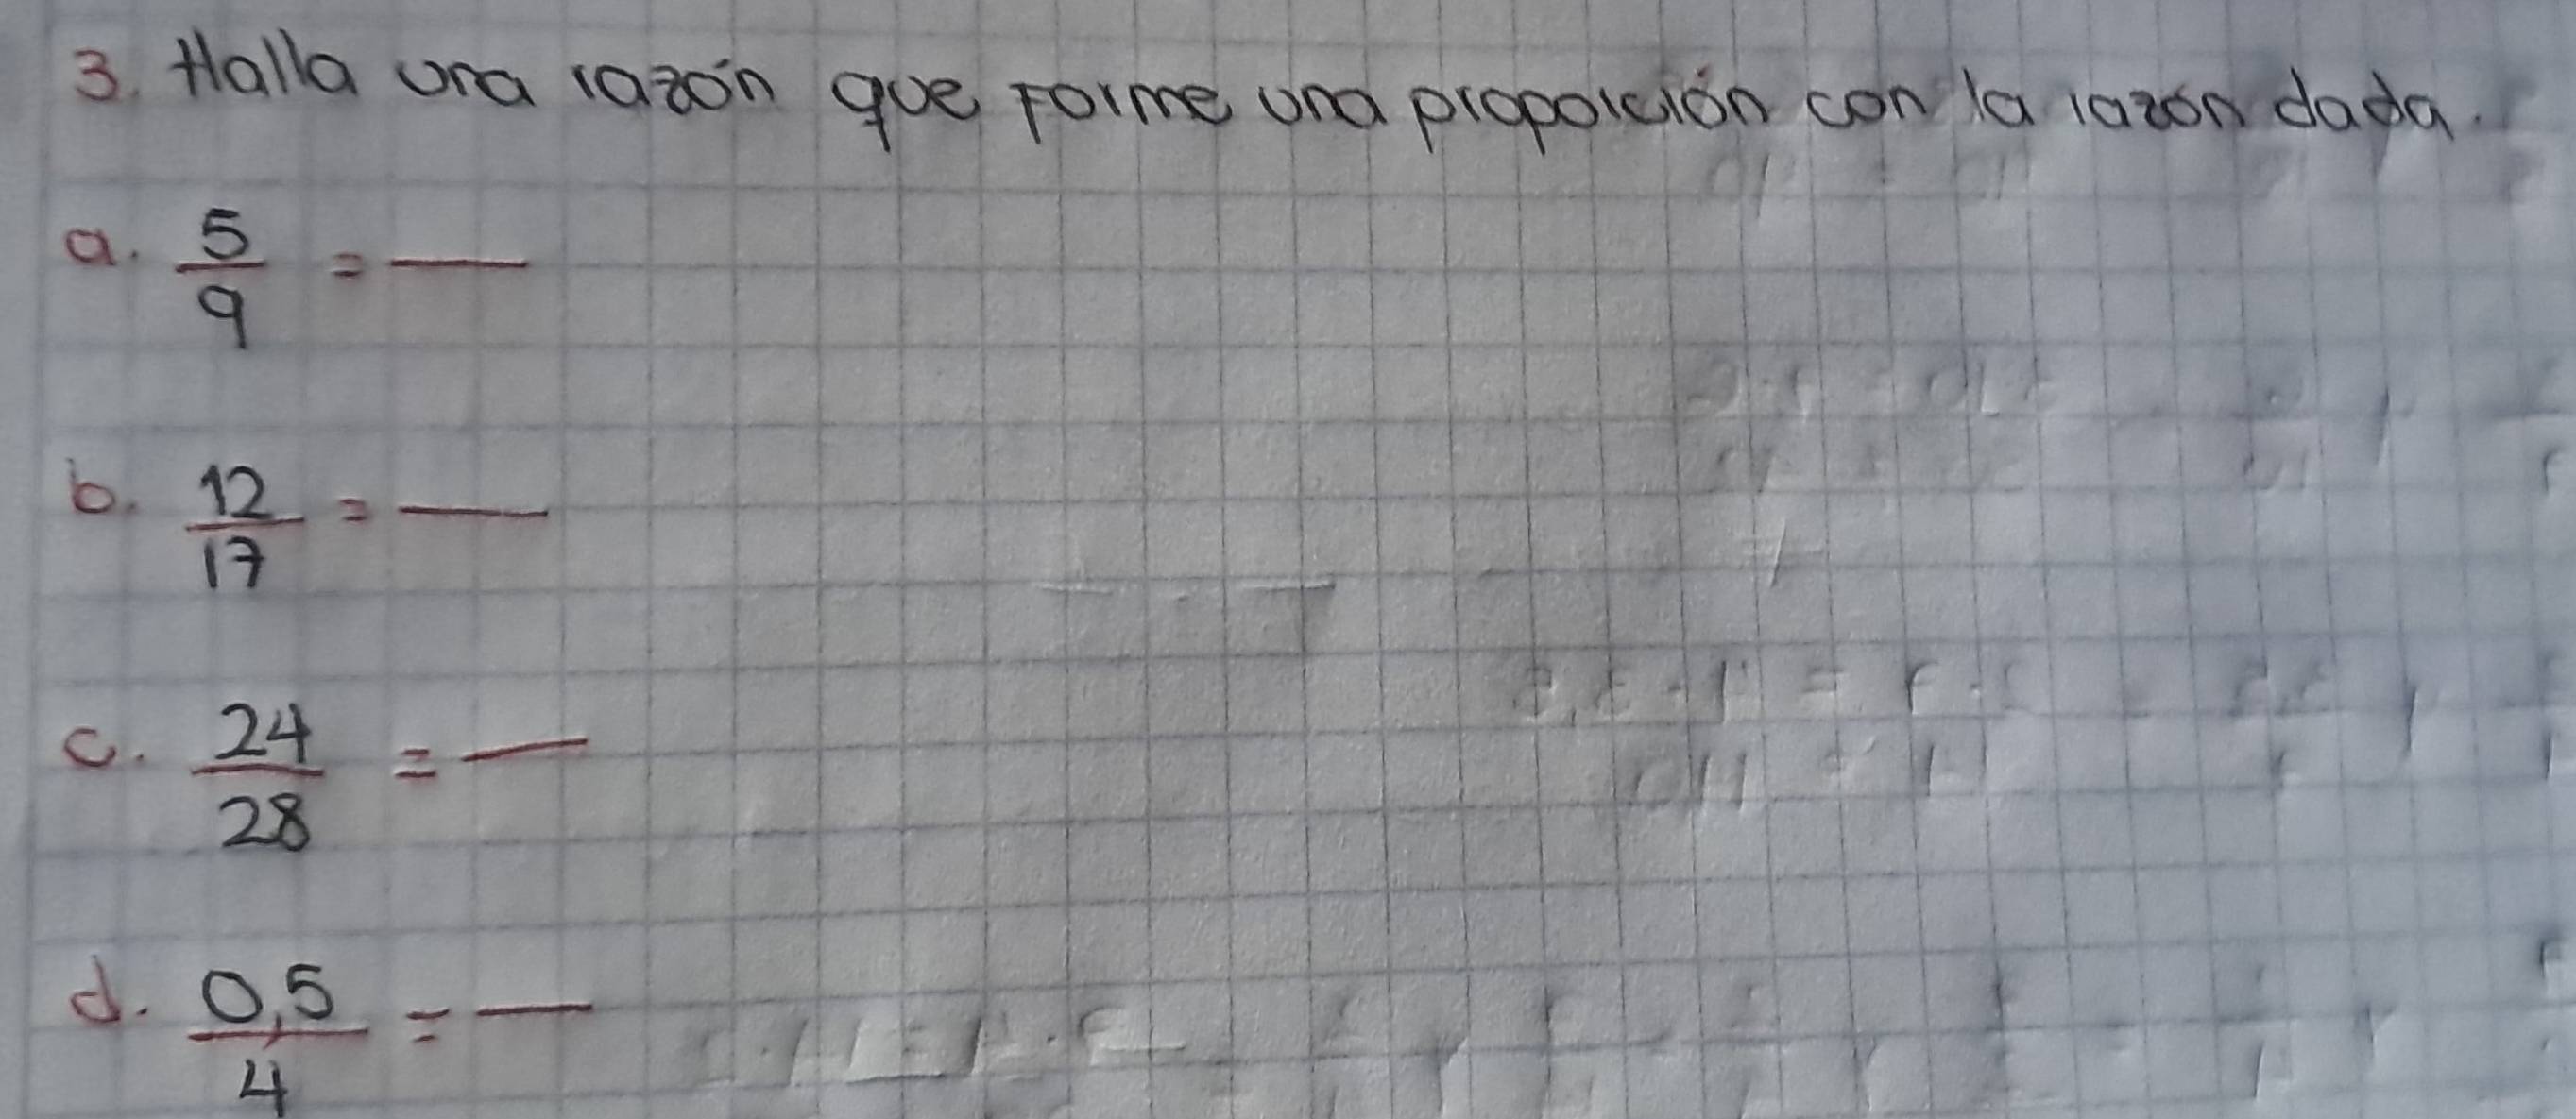 3. Halla una razón que forme una proporción con la razón dada.
a. 5/9 = —
b. 12/17 = —
c. 24/28 = —
d. 0,5/4 = —